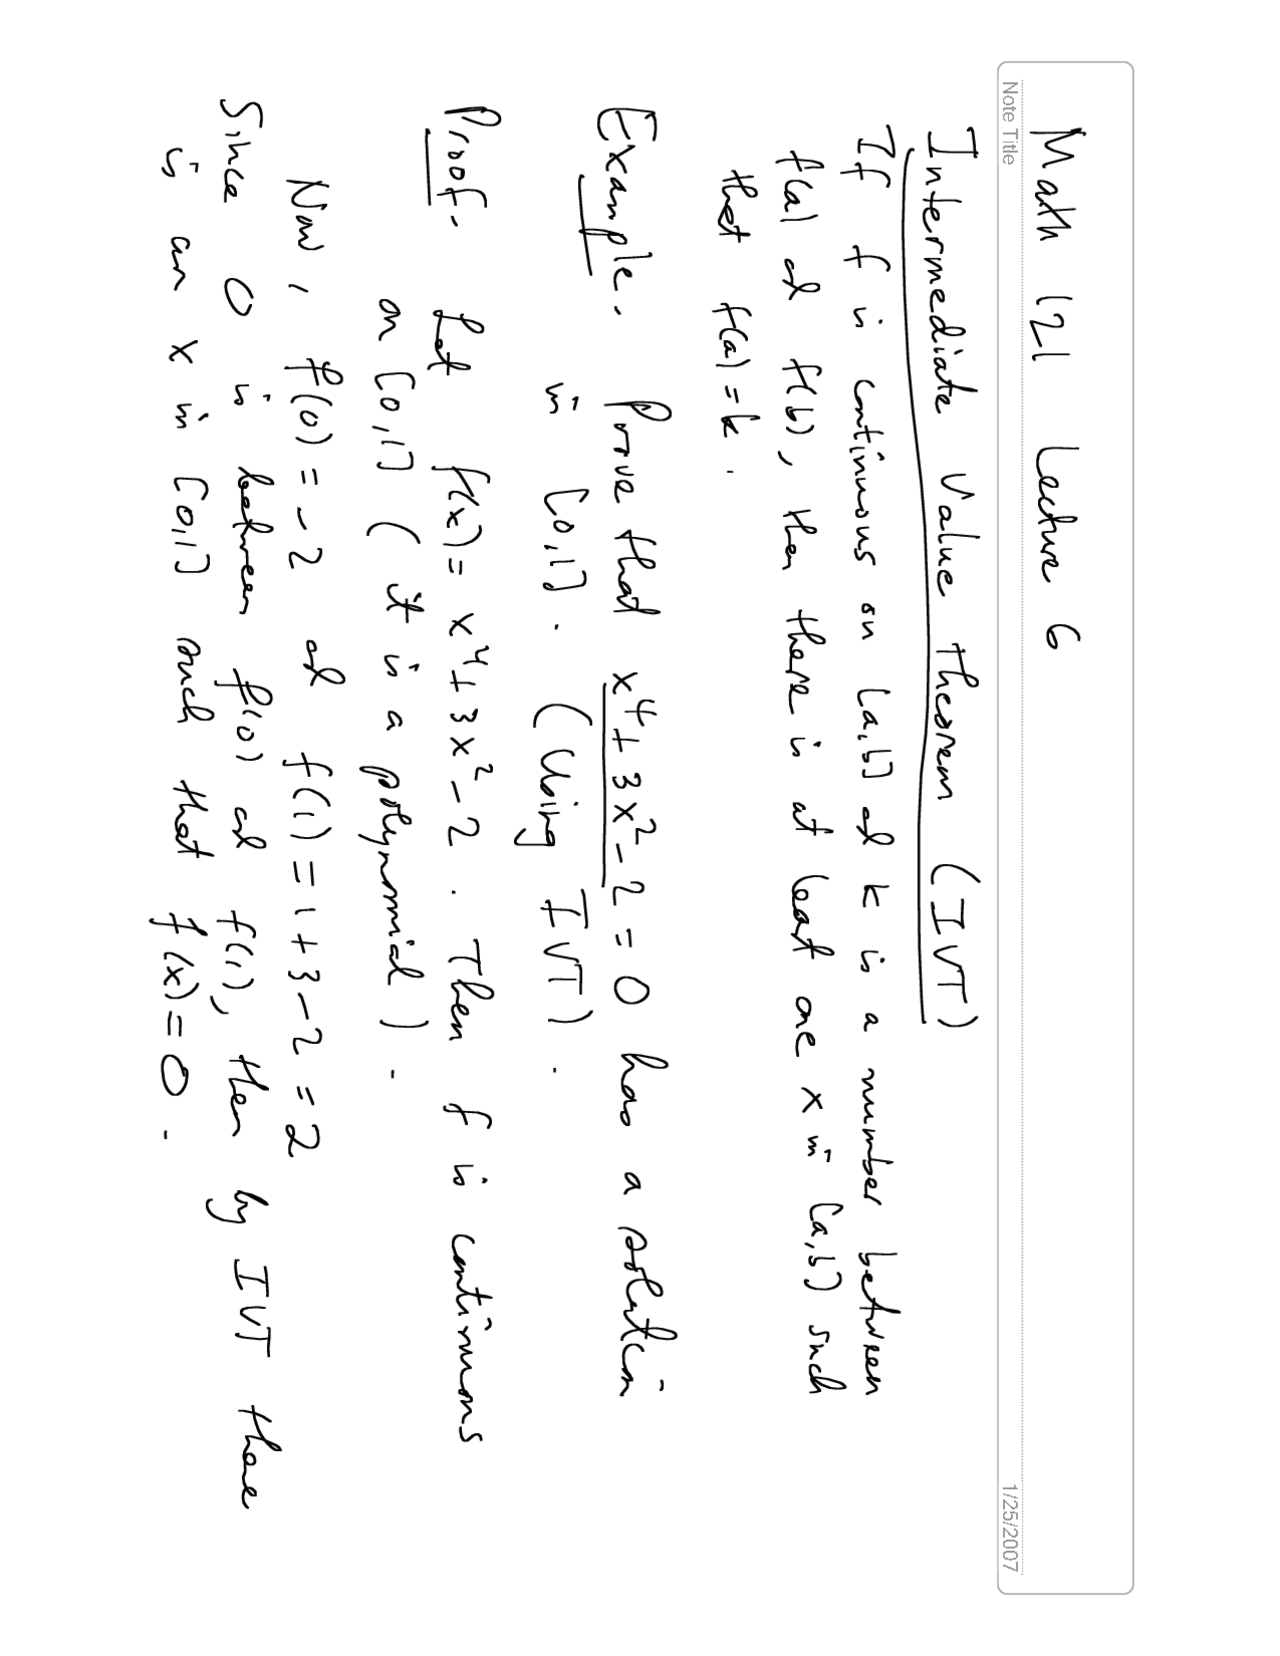 Math 121 Lecture 6
Note Title
1/25/2007
Intermediate Value theorem (IVT)
If f is continuous on [a,b] and k is a number between
f(a) and f(b), then there is at least one x in [a,b] such
that f(a) = k.
Example. Prove that x⁴ + 3x² - 2 = 0 has a solution
in [0,1]. (Using IVT).
Proof. Let f(x) = x⁴ + 3x² - 2. Then f is continuous
on [0,1] (it is a polynomial).
Now, f(0) = -2 and f(1) = 1 + 3 - 2 = 2
Since 0 is between f(0) and f(1), then by IVT there
is an x in [0,1] such that f(x) = 0.